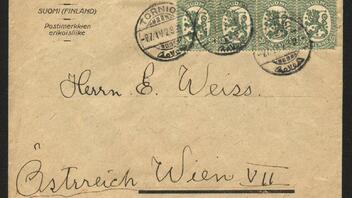 SUOMI (FINLAND)
Postimerkkien
erikoisliike
TORNIO
Herrn E. Weiss.
Österreich Wien VII